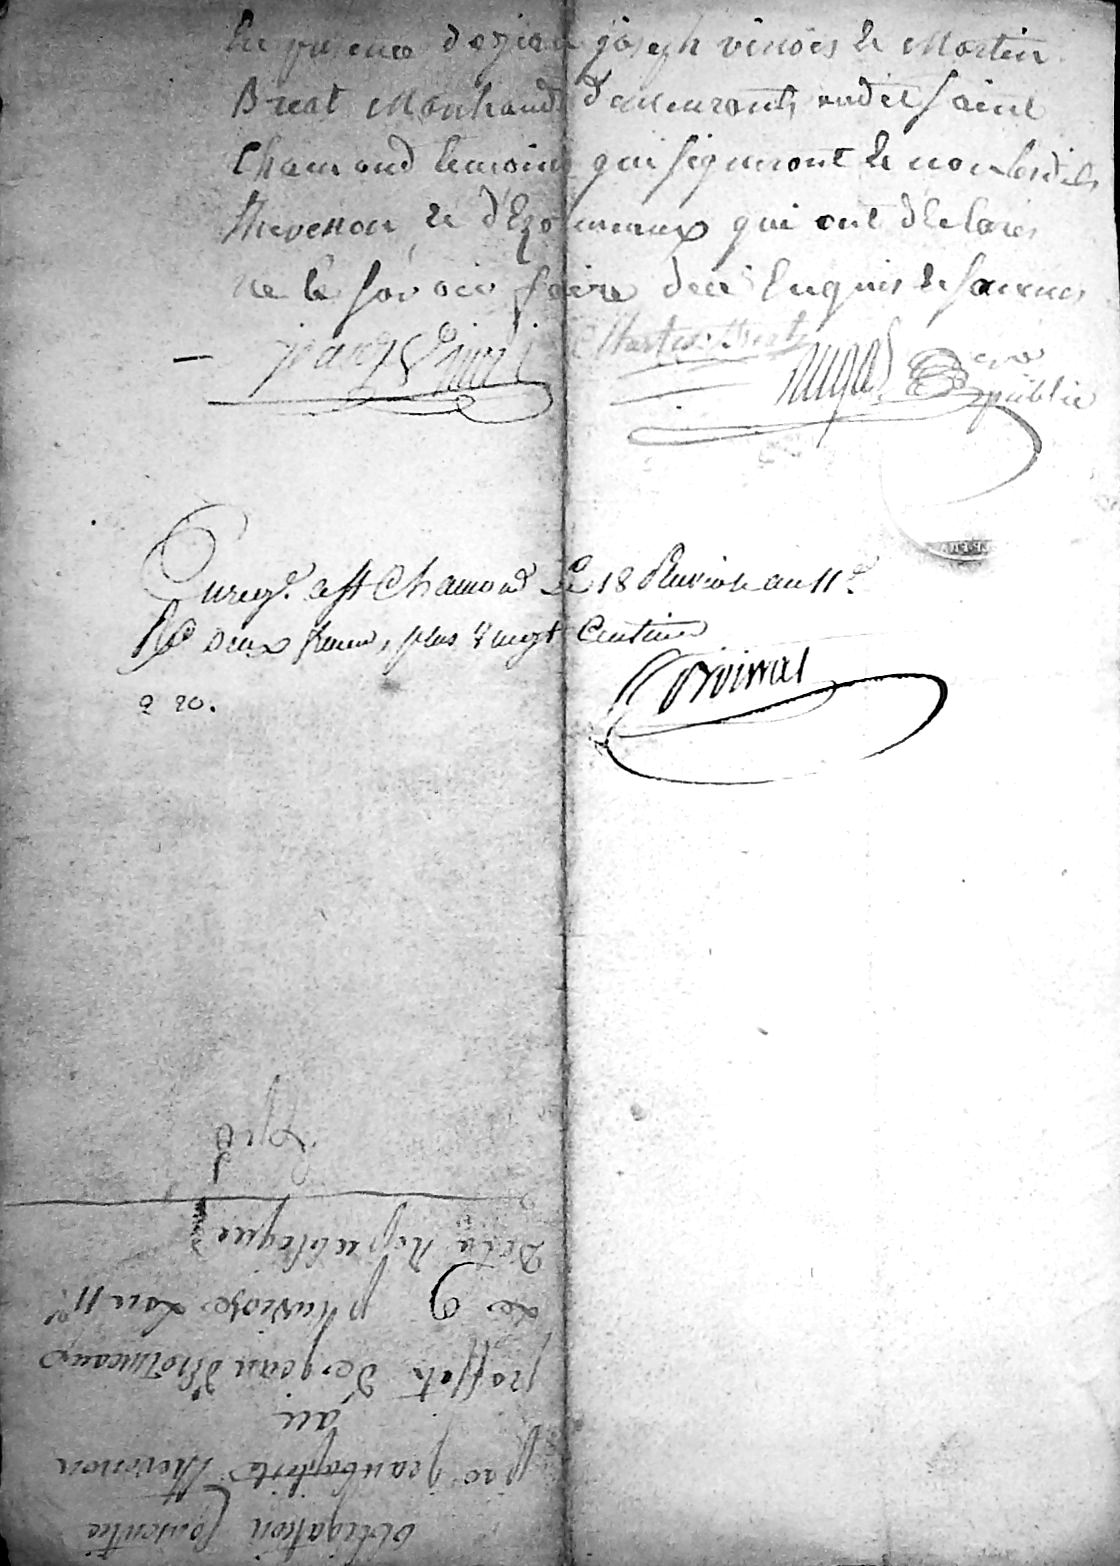 En presence de jean joseph vinois et Martin
Breat Marchands demeurants audit saint
Chamond temoins qui signeront et non lesdits
thevenon et d'hzo meaux qui ont déclarés
ne le savoir faire de ce Enquis et sommés
Martin Breat
public
Enreg. a St Chamond Le 18 Pluviose an 11.e
Rç deux francs, plus vingt Centimes
2 20.
obligation Consentie
par jeanbaptiste thevenon
au
proffit de jean
Le 9 pluviose Lan 11e
De la Republique